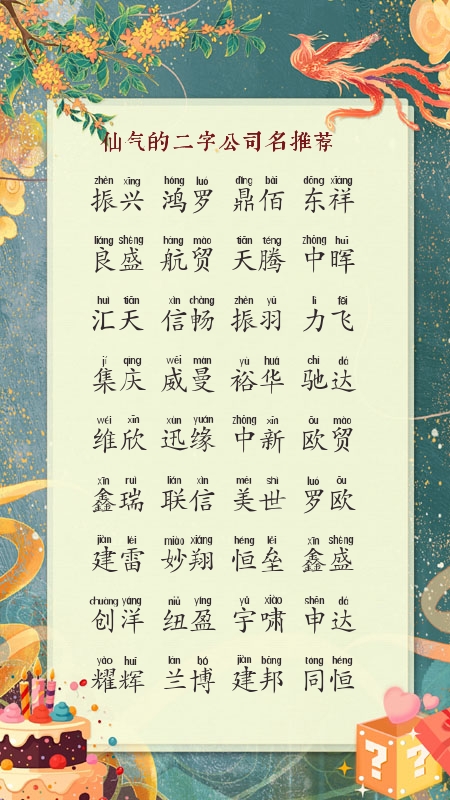 仙气的二字公司名推荐
zhèn xīng hóng luó dǐng bǎi dōng xiáng
振兴 鸿罗 鼎佰 东祥
liáng shèng háng mào tiān téng zhōng huī
良盛 航贸 天腾 中晖
huì tiān xìn chàng zhèn yǔ lì fēi
汇天 信畅 振羽 力飞
jí qìng wēi màn yù huá chí dá
集庆 威曼 裕华 驰达
wéi xīn xùn yuán zhōng xīn ōu mào
维欣 迅缘 中新 欧贸
xīn ruì lián xìn měi shì luó ōu
鑫瑞 联信 美世 罗欧
jiàn léi miào xiáng héng lěi xīn shèng
建雷 妙翔 恒垒 鑫盛
chuàng yáng niǔ yíng yǔ xiào shēn dá
创洋 纽盈 宇啸 申达
yào huī lán bó jiàn bāng tóng héng
耀辉 兰博 建邦 同恒